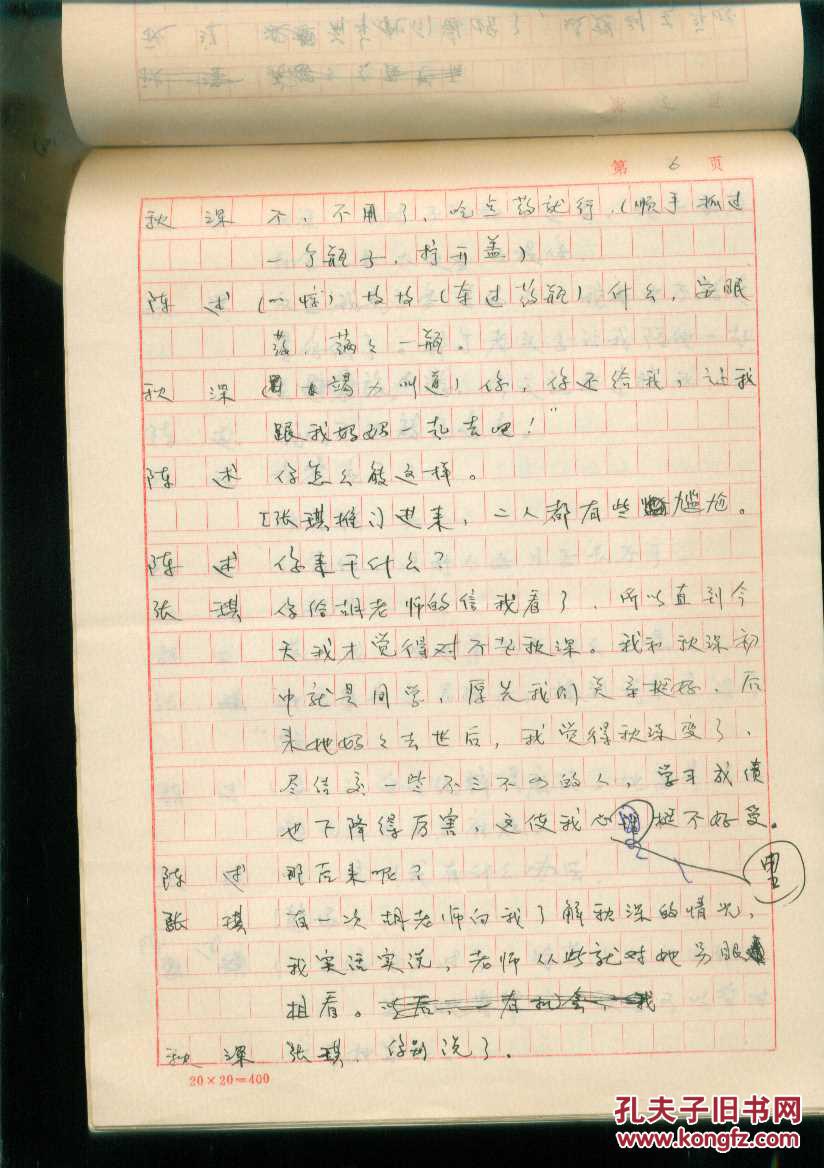 第 6 页
秋 深 不，不用了，吃点药就行，（顺手抓过
一个瓶子，拧开盖）
陈 述 （一惊）放放（夺过药瓶）什么，安眠
药，满々一瓶。
秋 深 竭力叫道）你，你还给我，让我
跟我妈妈一起去吧！”
陈 述 你怎么能这样。
［张琪推门进来，二人都有些尴尬。
陈 述 你来干什么？
张 琪 你给胡老师的信我看了，所以直到今
天我才觉得对不起秋深。我和秋深初
中就是同学，原先我们关系挺好，后
来她妈々去世后，我觉得秋深变了，
尽结交一些不三不四的人，学习成绩
也下降得厉害，这使我心里挺不好受。
陈 述 那后来呢？
张 琪 有一次胡老师向我了解秋深的情况，
我实话实说，老师从此就对她另眼
相看。以后，一有机会，我
秋 深 张琪，你别说了。
20×20=400
孔夫子旧书网
www.kongfz.com